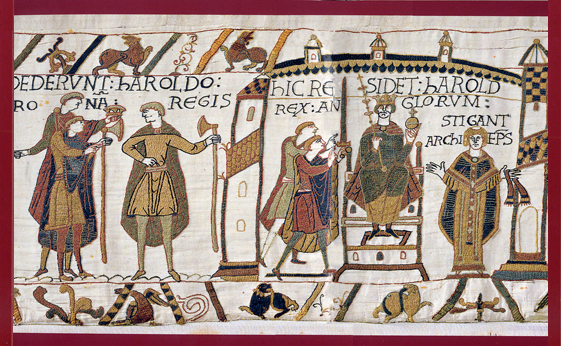 DEDERVNT: hAROLDO:
RO NA: REGIS
hIC RE SIDET: hAROLD
REX: AN GLORVM:
STIGANT
ARChI EPS